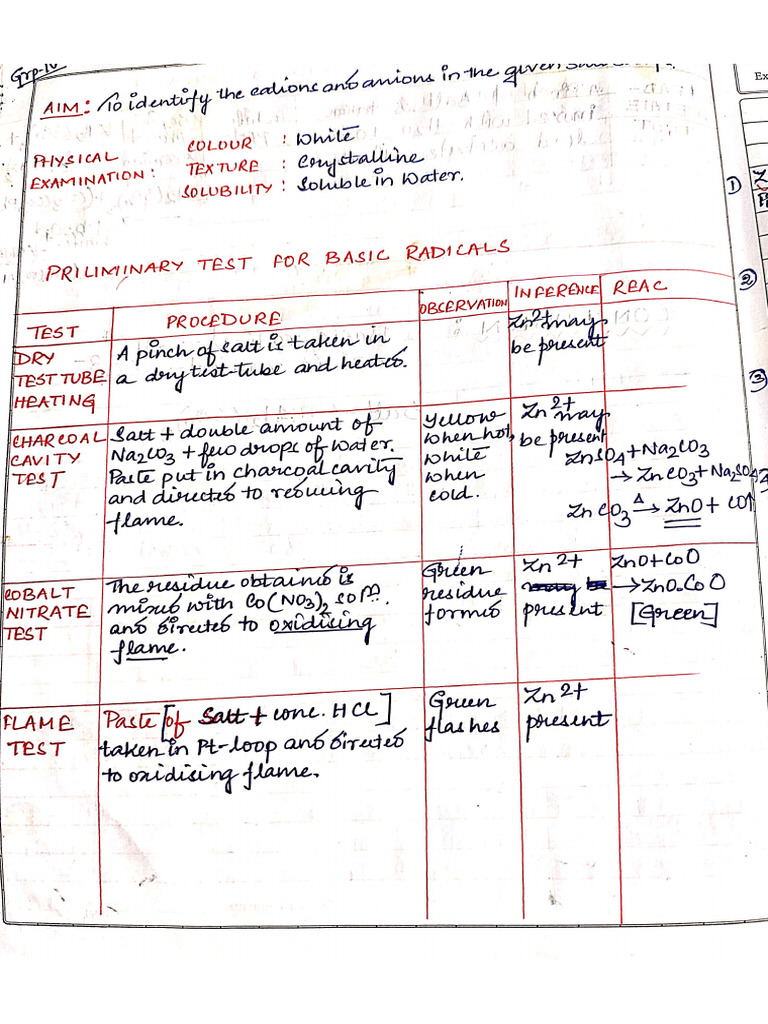 Grp-IV
AIM: To identify the cations and anions in the given
PHYSICAL EXAMINATION:
COLOUR : White
TEXTURE : Crystalline
SOLUBILITY : Soluble in Water.
PRILIMINARY TEST FOR BASIC RADICALS
TEST PROCEDURE OBSERVATION INFERENCE REAC
DRY TEST TUBE HEATING
A pinch of salt is taken in
a dry test-tube and heated.
Zn2+ may
be present
CHARCOAL CAVITY TEST
Salt + double amount of
Na2CO3 + few drops of Water.
Paste put in charcoal cavity
and directed to reducing
flame.
Yellow
when hot,
white
when
cold.
Zn2+ may
be present
ZnSO4 + Na2CO3
→ ZnCO3 + Na2SO4
ZnCO3 Δ→ ZnO + CO↑
COBALT NITRATE TEST
The residue obtained is
mixed with Co(NO3)2 soln.
and directed to oxidising
flame.
Green
residue
formed
Zn2+
present
ZnO + CoO
→ ZnO.CoO
[Green]
FLAME TEST
Paste [of Salt + conc. HCl]
taken in Pt-loop and directed
to oxidising flame.
Green
flashes
Zn2+
present
Ex
1
2
3